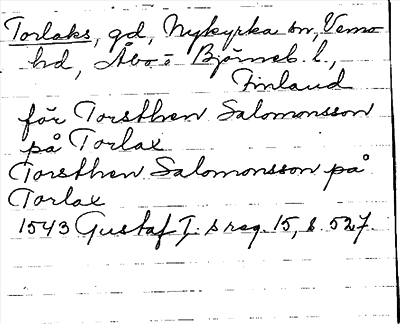 Torlaks, gd, Nykyrka sn, Vemo
hd, Åbo o Björneb. l.,
Finland
för Torsthen Salomonsson
på Torlax
Torsthen Salomonsson på
Torlax
1543 Gustaf I:s reg. 15, s. 527.